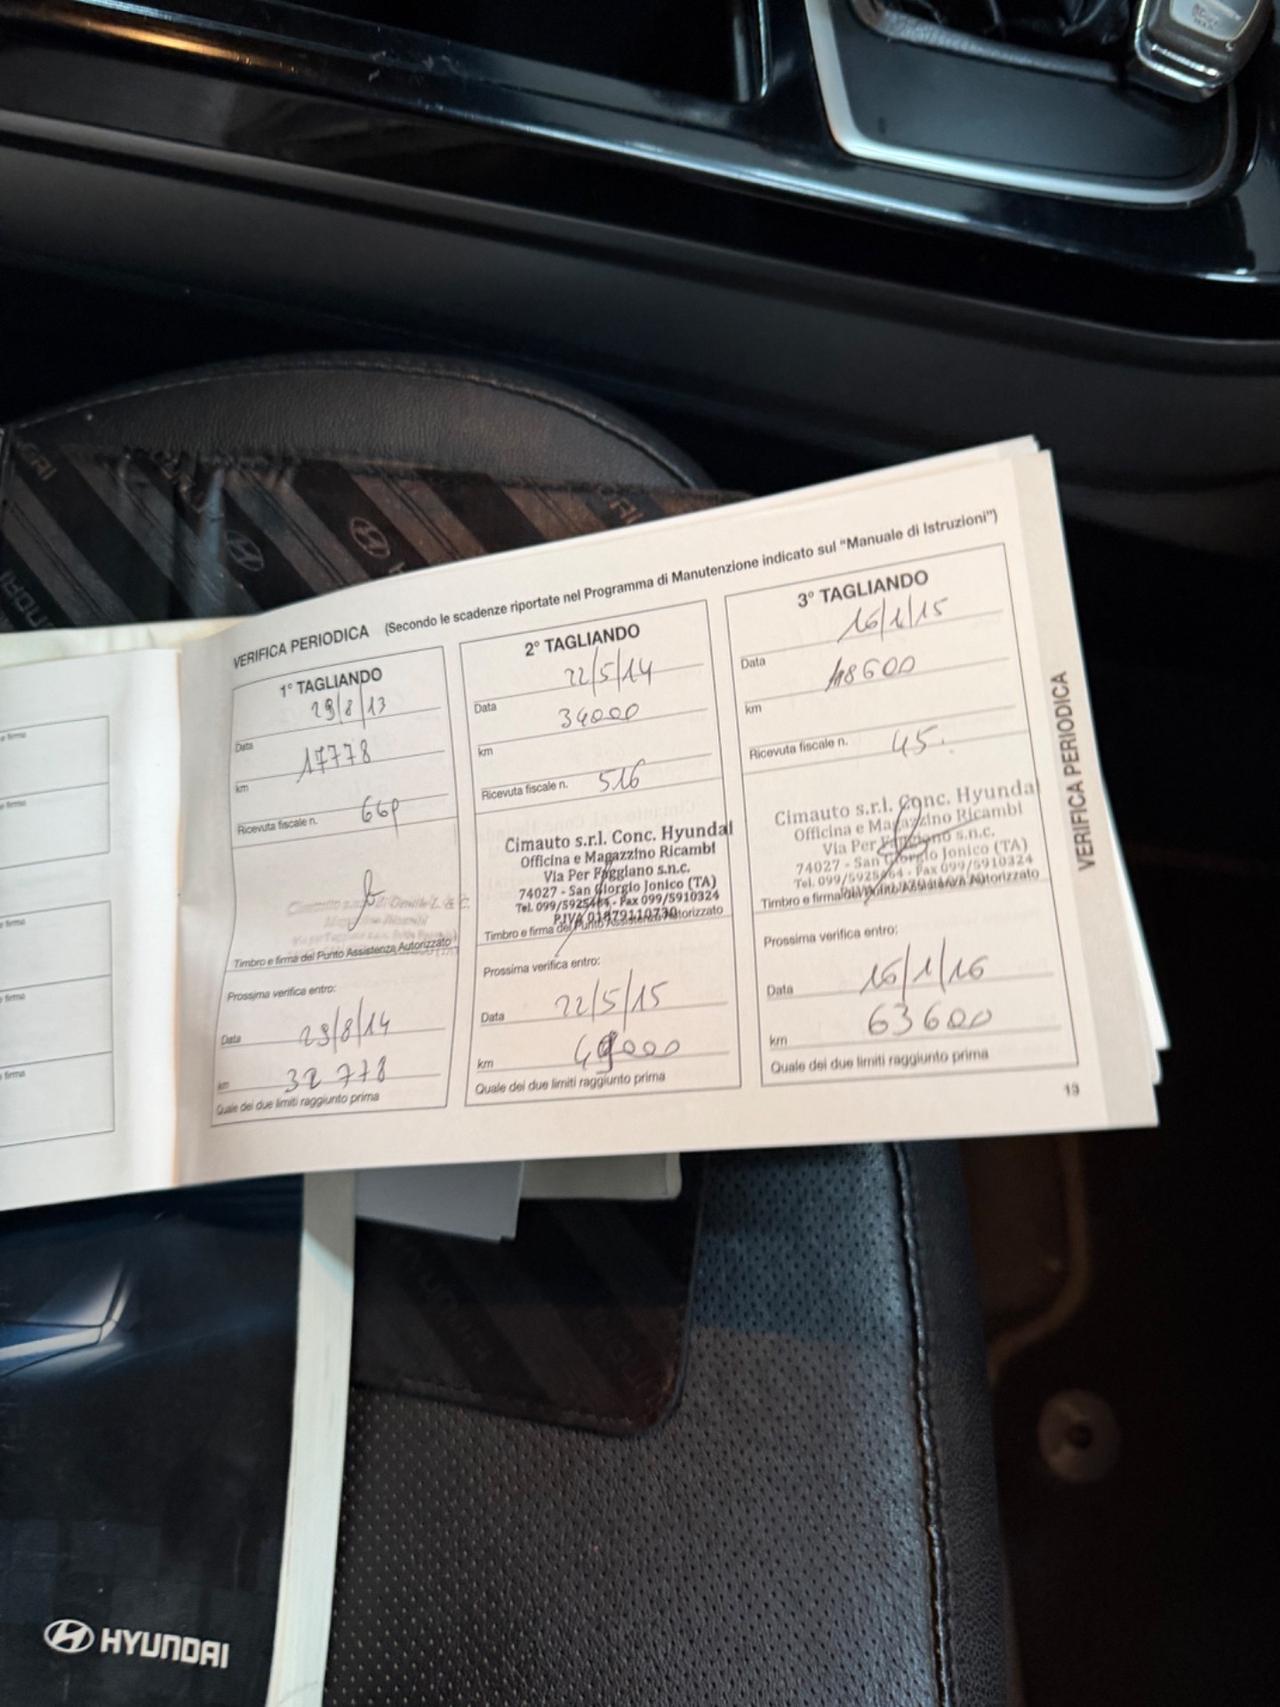 VERIFICA PERIODICA (Secondo le scadenze riportate nel Programma di Manutenzione indicato sul "Manuale di Istruzioni")
1° TAGLIANDO
29/8/13
Data
17778
km
Ricevuta fiscale n.
Timbro e firma del Punto Assistenza Autorizzato
Prossima verifica entro:
Data 29/8/14
km 32778
Quale dei due limiti raggiunto prima
2° TAGLIANDO
22/5/14
Data
34000
km
Ricevuta fiscale n. 516
Cimauto s.r.l. Conc. Hyundai
Officina e Magazzino Ricambi
Via Per Faggiano s.n.c.
74027 - San Giorgio Jonico (TA)
Tel. 099/5925464 - Fax 099/5910324
P.IVA 01879110730
Timbro e firma del Punto Assistenza Autorizzato
Prossima verifica entro:
Data 22/5/15
km 49000
Quale dei due limiti raggiunto prima
3° TAGLIANDO
16/1/15
Data
48600
km
Ricevuta fiscale n. 45.
Cimauto s.r.l. Conc. Hyundai
Officina e Magazzino Ricambi
Via Per Faggiano s.n.c.
74027 - San Giorgio Jonico (TA)
Tel. 099/5925464 - Fax 099/5910324
Timbro e firma del Punto Assistenza Autorizzato
Prossima verifica entro:
Data 16/1/16
km 63600
Quale dei due limiti raggiunto prima
13
VERIFICA PERIODICA
HYUNDAI